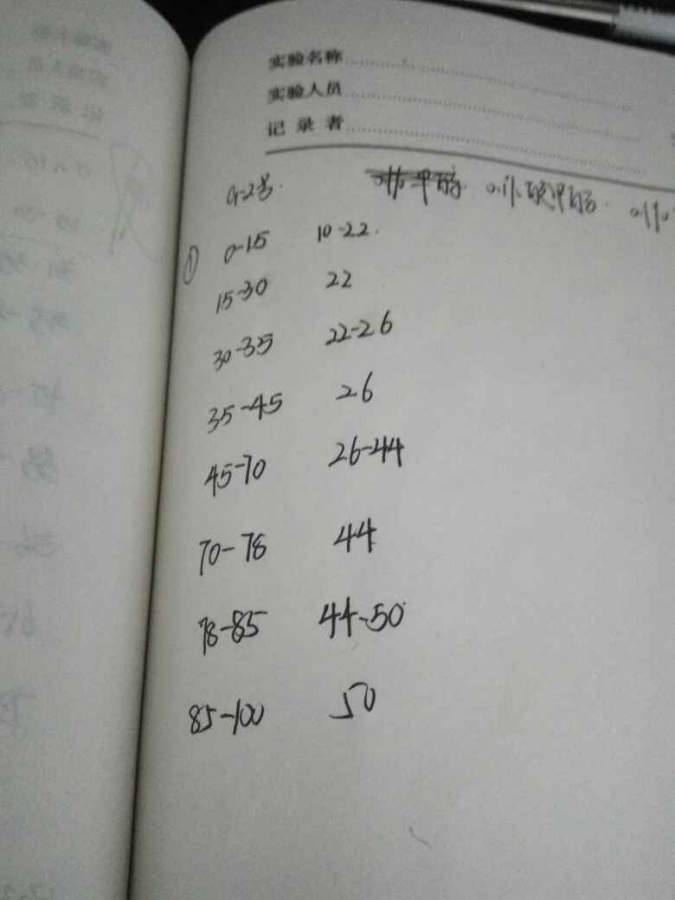 实验名称
实验人员
记录者
G-2号.
① 0-15 10-22.
15-30 22
30-35 22-26
35-45 26
45-70 26-44
70-78 44
78-85 44-50
85-100 50